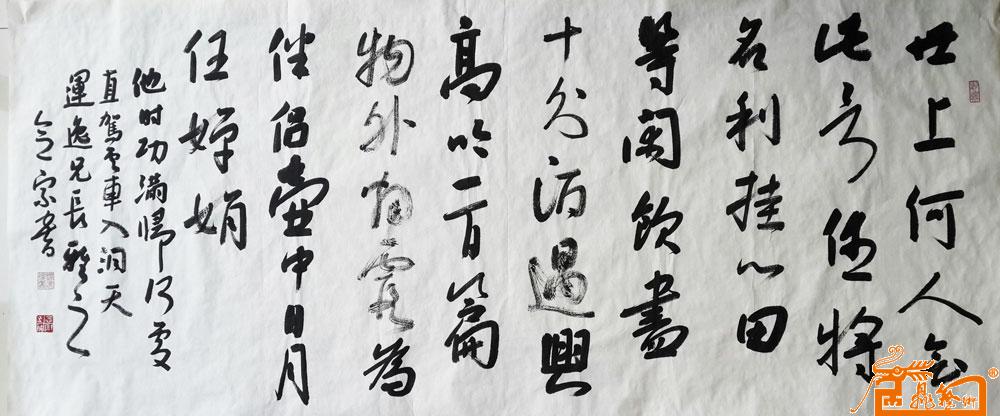 世上何人会
此言休将
名利挂心田
等闲飲盡
十分酒遇興
高吟一百篇
物外烟霞為
伴侣壺中日月
任婵娟
他时功满歸何處
直駕云車入洞天
運逸兄長雅之
宗書